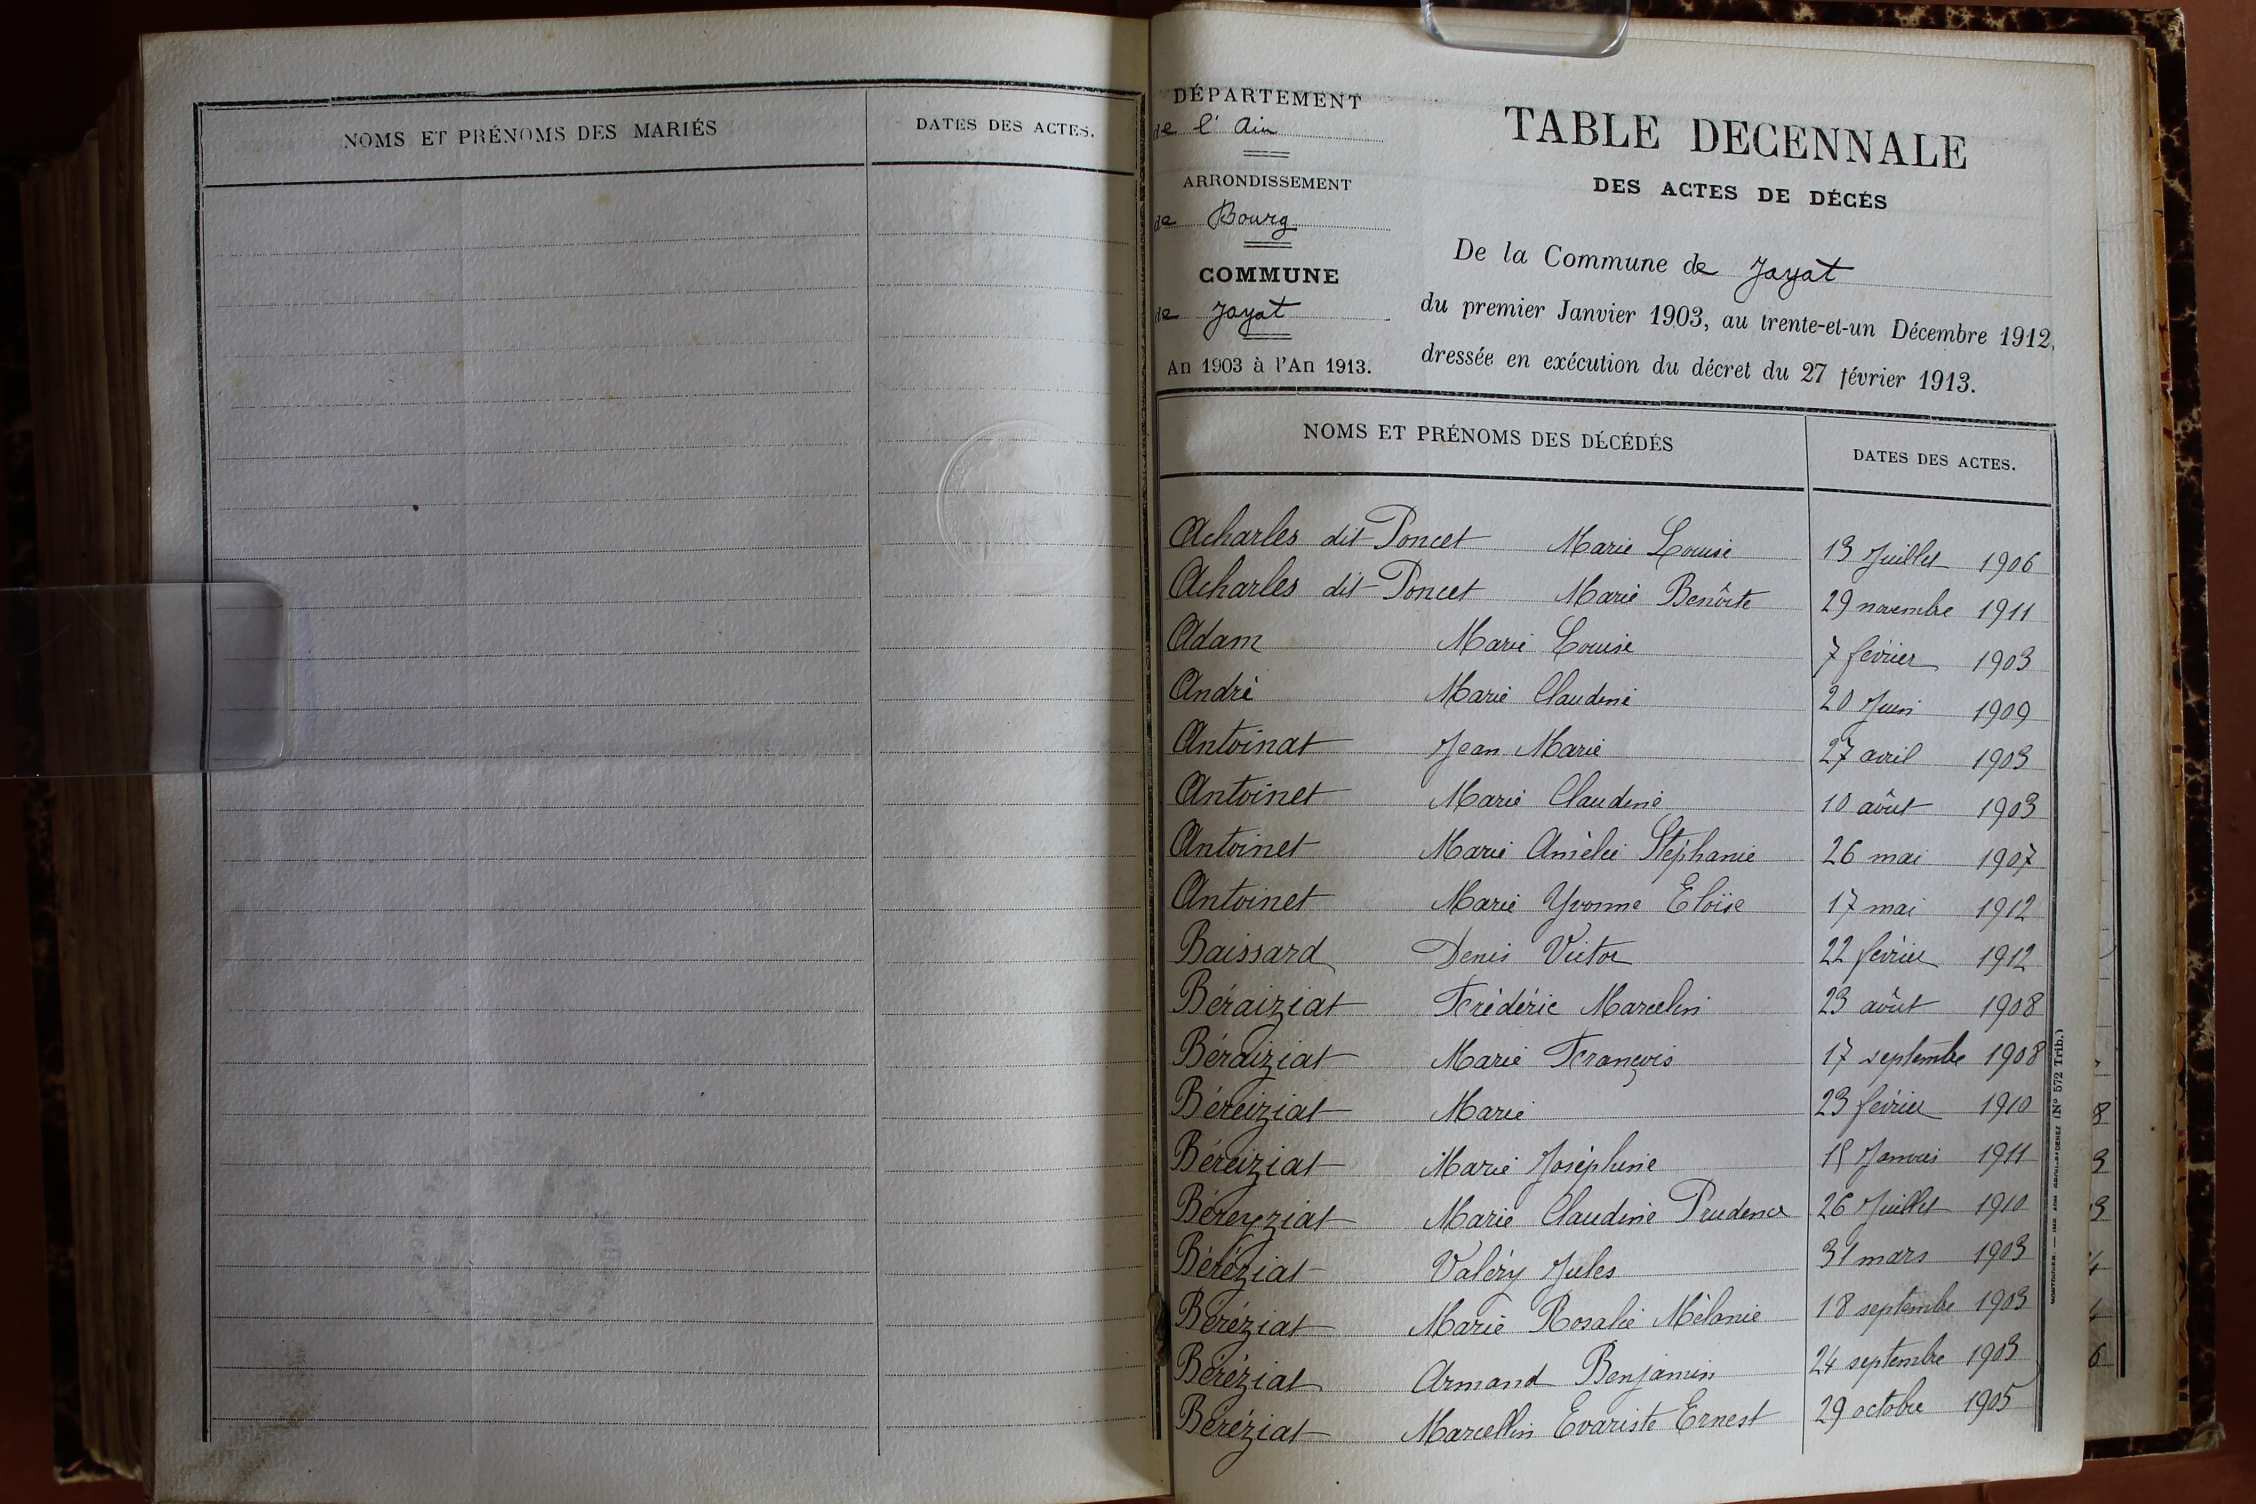 NOMS ET PRÉNOMS DES MARIÉS DATES DES ACTES.
DÉPARTEMENT
de l'Ain
ARRONDISSEMENT
de Bourg
COMMUNE
de Jayat
An 1903 à l'An 1913.
TABLE DECENNALE
DES ACTES DE DÉCÉS
De la Commune de Jayat
du premier Janvier 1903, au trente-et-un Décembre 1912,
dressée en exécution du décret du 27 février 1913.
NOMS ET PRÉNOMS DES DÉCÉDÉS DATES DES ACTES.
Acharles dit Poncet Marie Louise 13 Juillet 1906
Acharles dit Poncet Marie Benôite 29 novembre 1911
Adam Marie Louise 7 février 1903
André Marie Claudine 20 Juin 1909
Antoinat Jean Marie 27 avril 1903
Antoinet Marie Claudine 10 aôut 1903
Antoinet Marie Amélie Stéphanie 26 mai 1907
Antoinet Marie Yvonne Eloïse 17 mai 1912
Baissard Denis Victor 22 février 1912
Béraiziat Frédéric Marcelin 23 aôut 1908
Béraiziat Marie François 17 septembre 1908
Béreiziat Marie 23 février 1910
Béreiziat Marie Joséphine 15 Janvier 1911
Béreyziat Marie Claudine Prudence 26 Juillet 1910
Béréziat Valéry Jules 31 mars 1903
Béréziat Marie Rosalie Mélanie 18 septembre 1903
Béréziat Armand Benjamin 24 septembre 1903
Béréziat Marcellin Evariste Ernest 29 octobre 1905
(N° 572 Trib.)
8
3
3
4
6